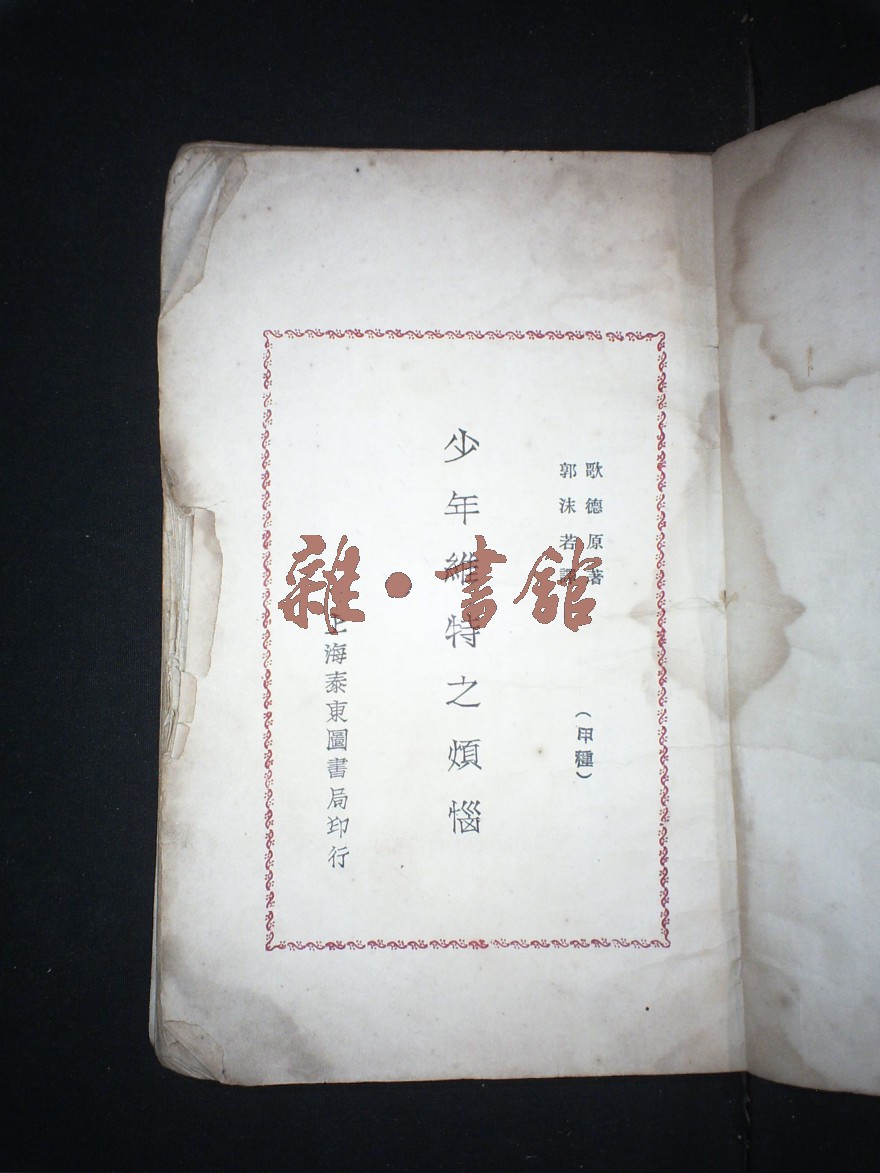 歌德原著
郭沫若譯
（甲種）
少年維特之煩惱
上海泰東圖書局印行
雜·書館